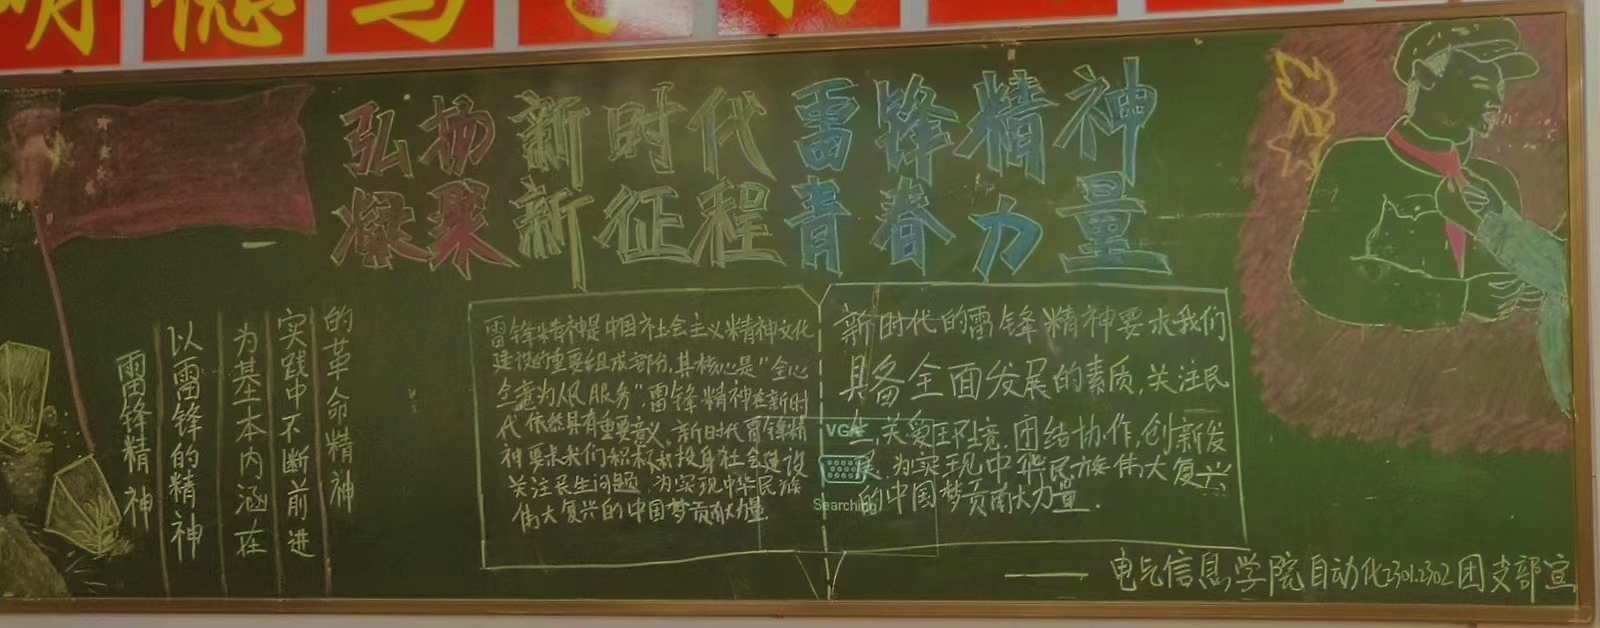 明德
弘扬新时代雷锋精神
凝聚新征程青春力量
雷锋精神
以雷锋的精神
为基本内涵在
实践中不断前进
的革命精神
雷锋精神是中国社会主义精神文化
建设的重要组成部分,其核心是"全心
全意为人民服务",雷锋精神在新时
代依然具有重要意义、新时代雷锋精
神要求我们积极投身社会建设
关注民生问题,为实现中华民族
伟大复兴的中国梦贡献力量
新时代的雷锋精神要求我们
具备全面发展的素质,关注民
生,关爱环境,团结协作,创新发
展,为实现中华民族伟大复兴
的中国梦贡献力量.
VGA
Searching
——电气信息学院自动化2301.2302团支部宣